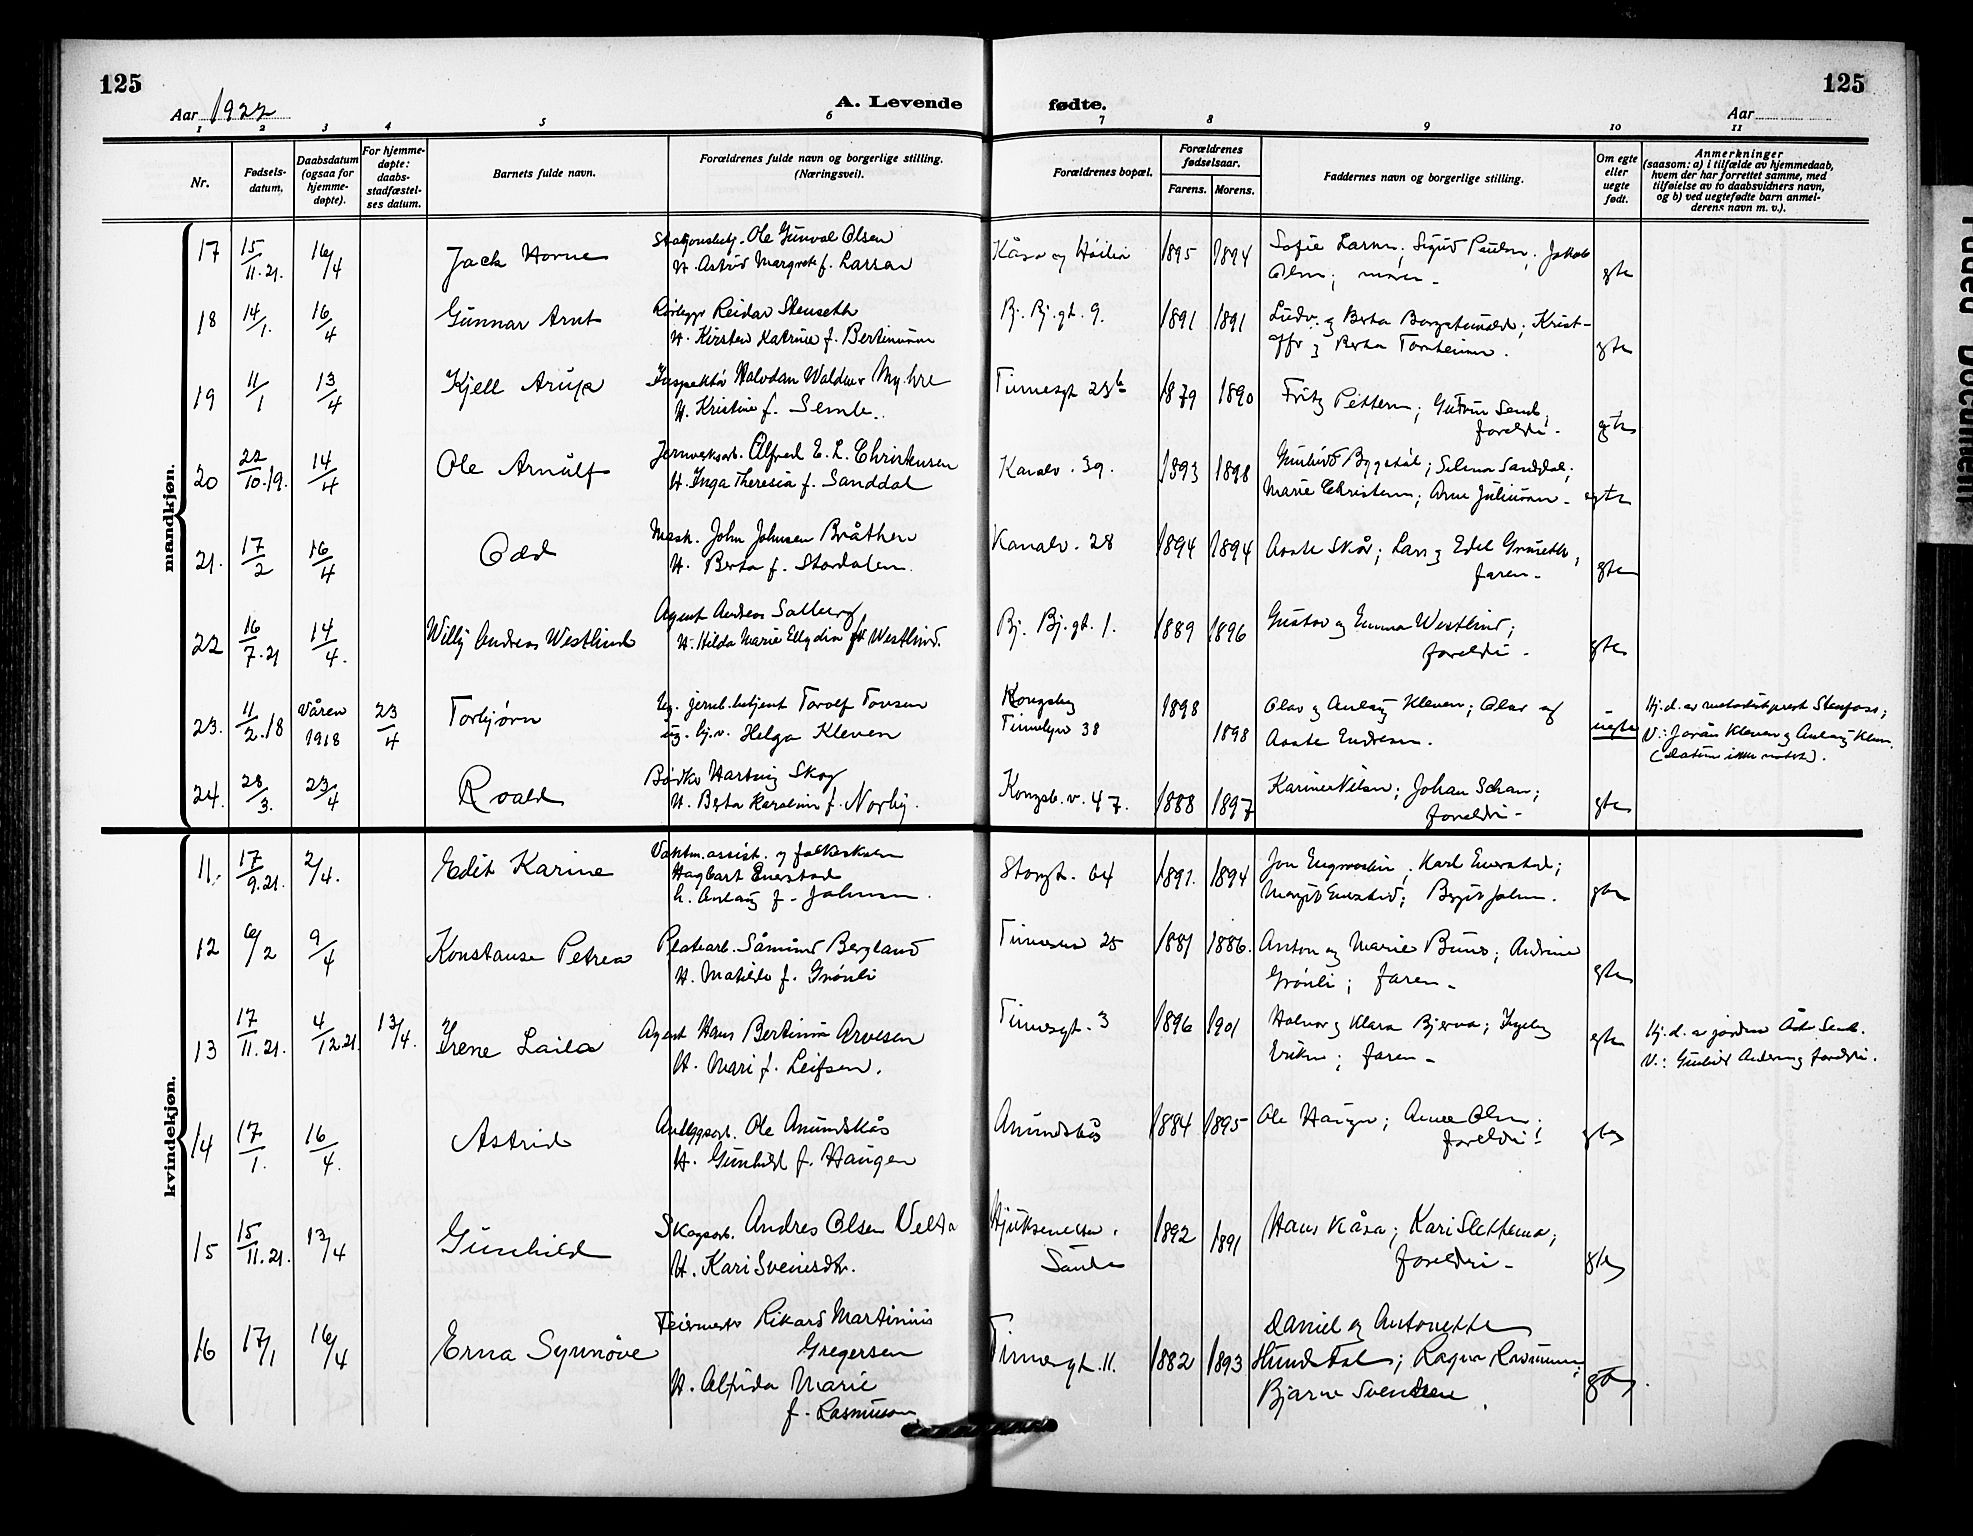 125
Aar 1922
A. Levende
fødte.
125
Aar
1 2 3 4 5 6 7 8 9 10 11
Nr.
Fødsels-
datum.
Daabsdatum
(ogsaa for
hjemme-
døpte).
For hjemme-
døpte:
daabs-
stadfæstel-
ses datum.
Barnets fulde navn.
Forældrenes fulde navn og borgerlige stilling.
(Næringsvei).
Forældrenes bopæl.
Forældrenes
fødselsaar.
Farens. Morens.
Faddernes navn og borgerlige stilling.
Om egte
eller
uegte
født.
Anmerkninger
(saasom: a) i tilfælde av hjemmedaab,
hvem der har forrettet samme, med
tilføielse av to daabsvidners navn,
og b) ved uegtefødte barn anmel-
derens navn m. v.).
mandkjøn.
17 15/11.21. 16/4 Jack Horne
Ole Gunval Olsen
H. Astrid Margrete f. Larsen
Kåsa og Höilia 1895 1894
Sofie Larsen; Sigurd Paulsen; Jakob
Olsen; moren egte
18 14/1. 16/4 Gunnar Arnt
Rörlegger Reidar Stenseth
H. Kirsten Katrine f. Bertinusen
Bj. Bj.gt. 9. 1891 1891
Ludv. og Berta
og Berta egte
19 11/1 13/4 Kjell Arup
Inspektör Halvdan Myhre
H. Kristine f. Semb.
Tinnesgt 23b 1879 1890
Fritz Pettersen; Gudrun Semb;
foreldre. egte
20 22/10.19. 14/4 Ole Arnulf
Jernverksarb. Alfred E. L. Christensen
H. Inga Theresia f. Sanddal
Kanalv. 39. 1893 1898
Gunhild Bygstöl; Selma Sanddal;
Marie Christensen; Arne Juliussen egte
21. 17/2 16/4 Odd
Mask. John Johnsen Bråthen
H. Berta f. Stordalen.
Kanalv. 28 1894 1894
Aaste Skår; Lars og Edel
faren egte
22 16/7.21 14/4. Willy Andreas Westlind
Agent Andreas Solberg
H. Hilda Marie Ellydia f. Westlind.
Bj. Bj.gt. 1. 1889 1896
Gustav og Emma Westlind;
foreldre egte
23. 11/2.18 Våren 1918 23/4 Torbjörn
Ug. jernb.betjent Torolf Tovsen
ug. Helga Kleven
Kongsberg
Tinnebyen 38 1898 1898
Olav og Aaslaug Kleven; Olav og
Aaste Endresen. uegte
Hj.d. av metodistprest Stenfoss;
V.: Jorån Kleven og Aaslaug Kleven.
(datum ikke notert).
24. 28/3. 23/4 Roald
Bödker Hartvig Skog
H. Berta Karoline f. Norby.
Kongsb.v. 47. 1888 1897
Karine Nilsen; Johan Schau;
foreldre egte
kvindekjøn.
11. 17/9.21. 2/4. Edit Karine
Vaktm.assist. og
Hagbart Enerstad
h. Aaslaug f. Johnsen.
Storgt. 64 1891. 1894
Jon; Karl Enerstad;
Margit Enerstad; Birgit Johnsen. egte
12 6/2 9/4 Konstanse Petrea
Platearb. Såmund Bergland
H. Matilde f. Grönli
25 1881 1886.
Anton og Marie Buns; Andrine
Grönli; faren egte
13 17/11.21. 4/12.21. 13/4. Irene Laila
Agent Hans Bertinius Arvesen
H. Mari f. Leifsen.
Tinnesgt. 3 1896 1901
Halvor og Klara Bjerva; Ingeborg
Eriksen; faren egte
Hj.d. av jordmor Åste Semb.
V.: Gunhild Andersen og foreldre.
14 17/1. 16/4. Astrid
Anleggsarb. Ole Anundskås
H. Gunhild f. Haugen
Anundskås 1884 1895
Ole Haugen; Anne Olsen;
foreldre egte
15 15/11.21. 13/4 Gunhild
Skogsarb. Andres Olsen Velta
H. Kari Sveinsdtr.
Hjuksevelta,
Sauda 1892 1891
Hans Kåsa; Kari Slettemo;
foreldre egte
16 17/1 16/4 Erna Synnöve
Feiermester Rikard Martinius
Gregersen
H. Alfrida Marie
f. Rasmussen
Tinnesgt. 11. 1882 1893
Daniel og Antonette
Hundstad; Ragna Rasmussen;
Bjarne Svendsen. egte